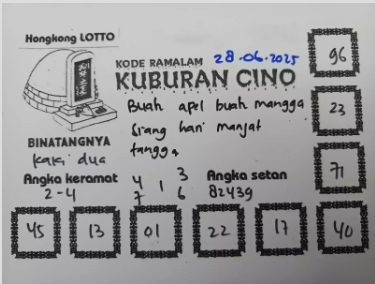 Hongkong LOTTO
KODE RAMALAM 28.06.2025
KUBURAN CINO
96
Buah apel buah mangga
siang hari manjat
tangga
23
BINATANGNYA
kaki dua
71
Angka keramat
2-4
4 3
1
7 6
Angka setan
82439
45 13 01 22 17 40